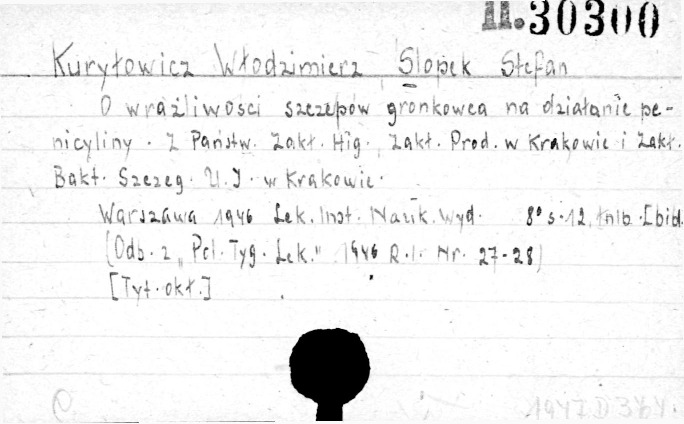 II.30300
Kuryłowicz Włodzimierz, Slopek Stefan
O wrażliwości szczepów gronkowca na działanie pe-
nicyliny. Z Państw. Zakł. Hig., Zakł. Prod. w Krakowie i Zakł.
Bakt. Szczeg. U.J. w Krakowie.
Warszawa 1946 Lek. Inst. Nauk. Wyd. 8° s. 12, tnlb. [bibl.
(Odb. z „Pol. Tyg. Lek." 1946 R.I. Nr. 27-28)
[Tyt. okł.]
1947 D 364.